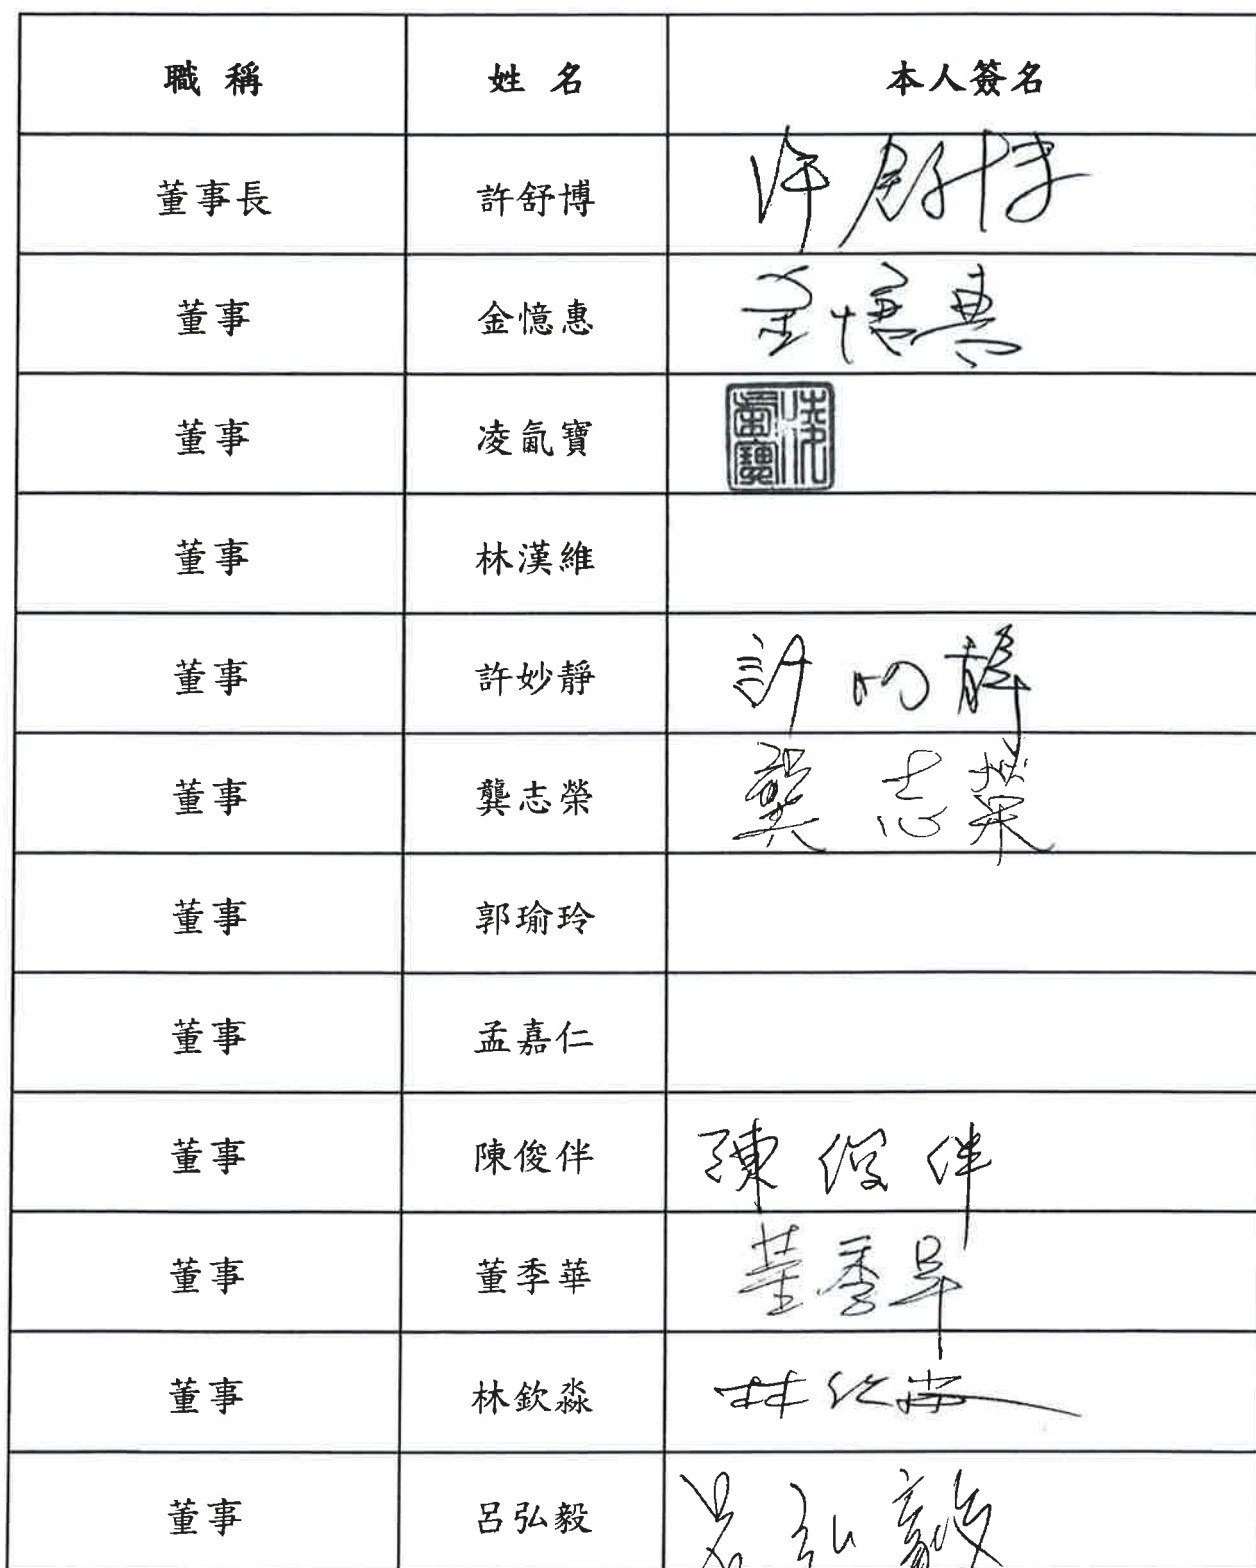 職稱 姓名 本人簽名
董事長 許舒博 許舒博
董事 金憶惠 金憶惠
董事 凌氤寶 凌氤寶
董事 林漢維
董事 許妙靜 許妙靜
董事 龔志榮 龔志榮
董事 郭瑜玲
董事 孟嘉仁
董事 陳俊伴 陳俊伴
董事 董季華 董季華
董事 林欽淼
董事 呂弘毅 呂弘毅